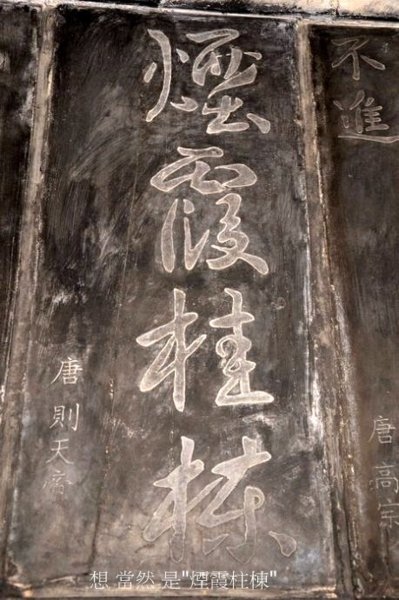 不進
唐高宗
煙霞桂棟
唐則天
想 當然 是"煙霞柱棟"